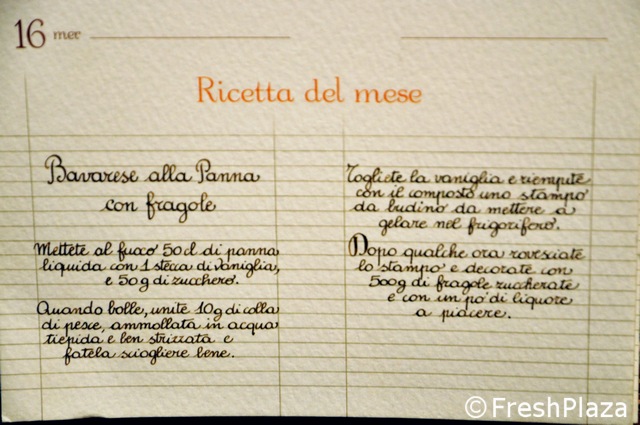 16 mer
Ricetta del mese
Bavarese alla Panna
con fragole
Mettete al fuoco 50 cl di panna
liquida con 1 stecca di vaniglia,
e 50 g di zucchero.
Quando bolle, unite 10 g di colla
di pesce, ammollata in acqua
tiepida e ben strizzata e
fatela sciogliere bene.
Togliete la vaniglia e riempite
con il composto uno stampo
da budino da mettere a
gelare nel frigorifero.
Dopo qualche ora rovesciate
lo stampo e decorate con
500 g di fragole zuccherate
e con un po' di liquore
a piacere.
©FreshPlaza